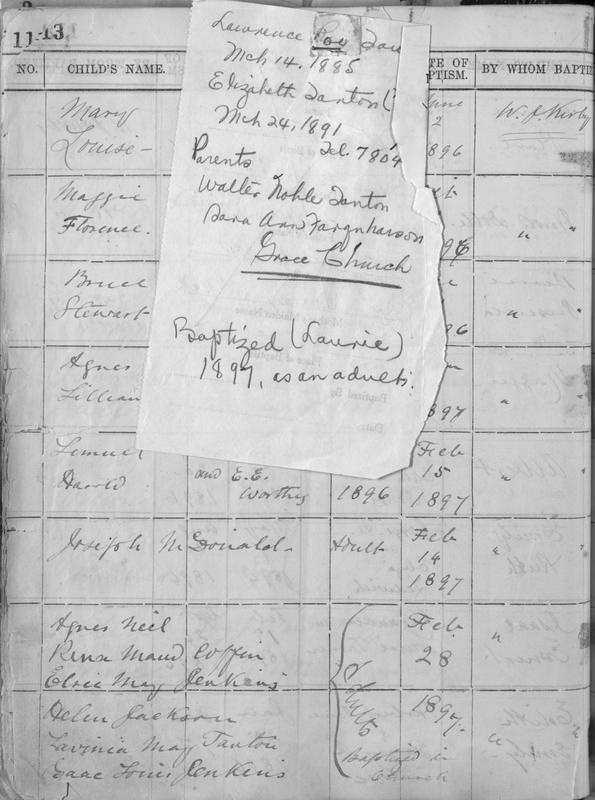 11-13
NO. CHILD'S NAME.
BY WHOM BAPTI
Lawrence Roy
Mch 14. 1885
Elizabeth Tanton
Mch 24, 1891
Tel. 7804
Parents
Walter Noble Tanton
Sara Ann Farquharson
Grace Church
Baptized (Laurie)
1897, as an adult.
Mary
Louise
June
2
1896
W. J. Kirby
Maggie
Florence.
"
Bruce
Stewart
"
Agnes
Lillian
897
"
Lemuel
Harold
and E. E.
Worthy
1896
Feb
15
1897
"
Joseph McDonald
Adult
Feb
14
1897
"
Agnes Neil
Rena Maud Coffin
Elsie May Jenkins
Helen Jackson
Lavinia May Tanton
Isaac Louis Jenkins
Adults
Baptized in
Church
Feb.
28
1897.
"